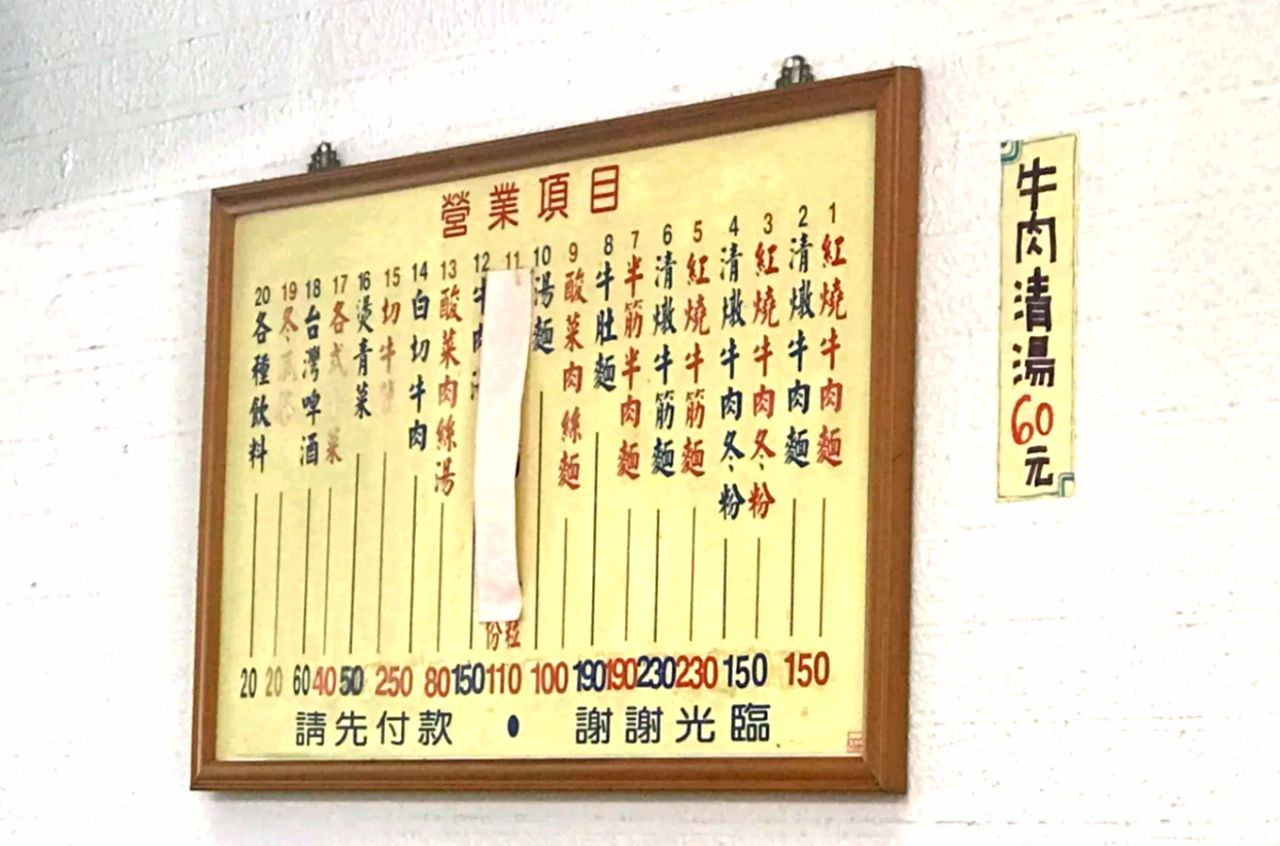 營業項目
1 紅燒牛肉麵
2 清燉牛肉麵
3 紅燒牛肉冬粉
4 清燉牛肉冬粉
5 紅燒牛筋麵
6 清燉牛筋麵
7 半筋半肉麵
8 牛肚麵
9 酸菜肉絲麵
10 湯麵
11
12 牛肉
13 酸菜肉絲湯
14 白切牛肉
15 切牛
16 燙青菜
17 各式 菜
18 台灣啤酒
19 冬
20 各種飲料
份 粒
20 20 60 40 50 250 80 150 110 100 190 190 230 230 150 150
請先付款 • 謝謝光臨
牛肉清湯60元